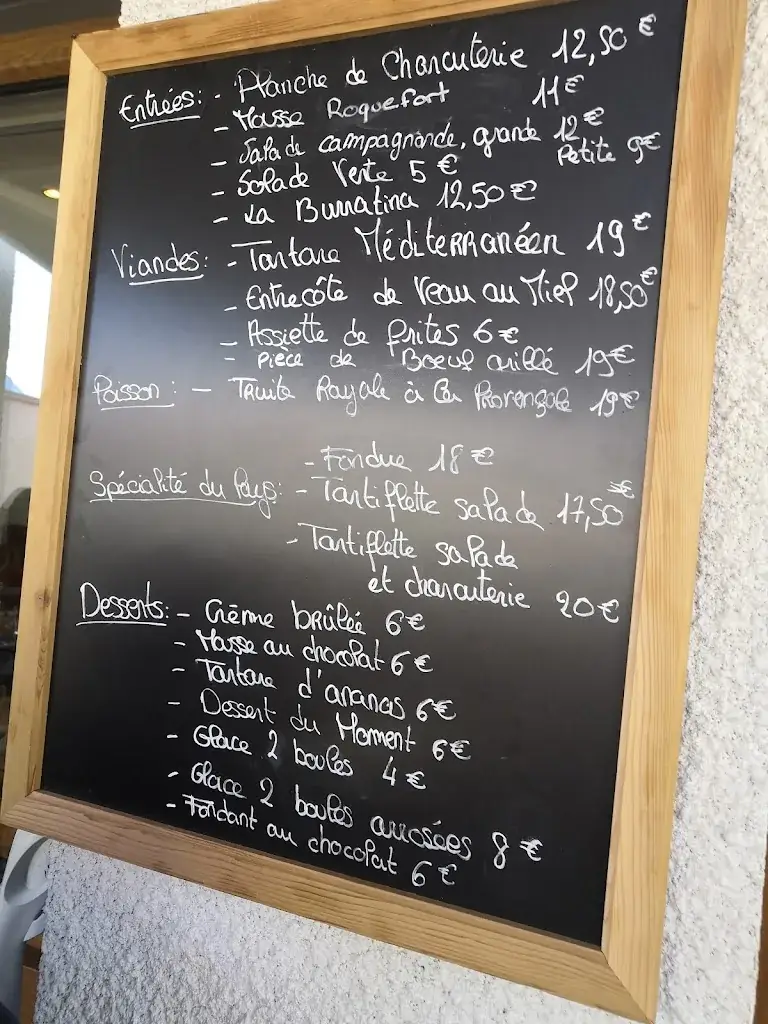 Entrées: - Planche de Charcuterie 12,50 €
- Mousse Roquefort 11€
- Salade campagnarde, grande 12€
Petite 9€
- Salade Verte 5 €
- La Burratina 12,50€
Viandes: - Tartare Méditerranéen 19€
- Entrecôte de Veau au Miel 18,50€
- Assiette de frites 6€
- Pièce de Boeuf grillé 19€
Poisson: - Truite Royale à la Provençale 19€
- Fondue 18€
Spécialité du Pays: - Tartiflette salade 17,50€
- Tartiflette salade
et charcuterie 20€
Desserts: - Crème brûlée 6€
- Mousse au chocolat 6€
- Tartare d'ananas 6€
- Dessert du Moment 6€
- Glace 2 boules 4€
- Glace 2 boules arrosées 8€
- Fondant au chocolat 6€